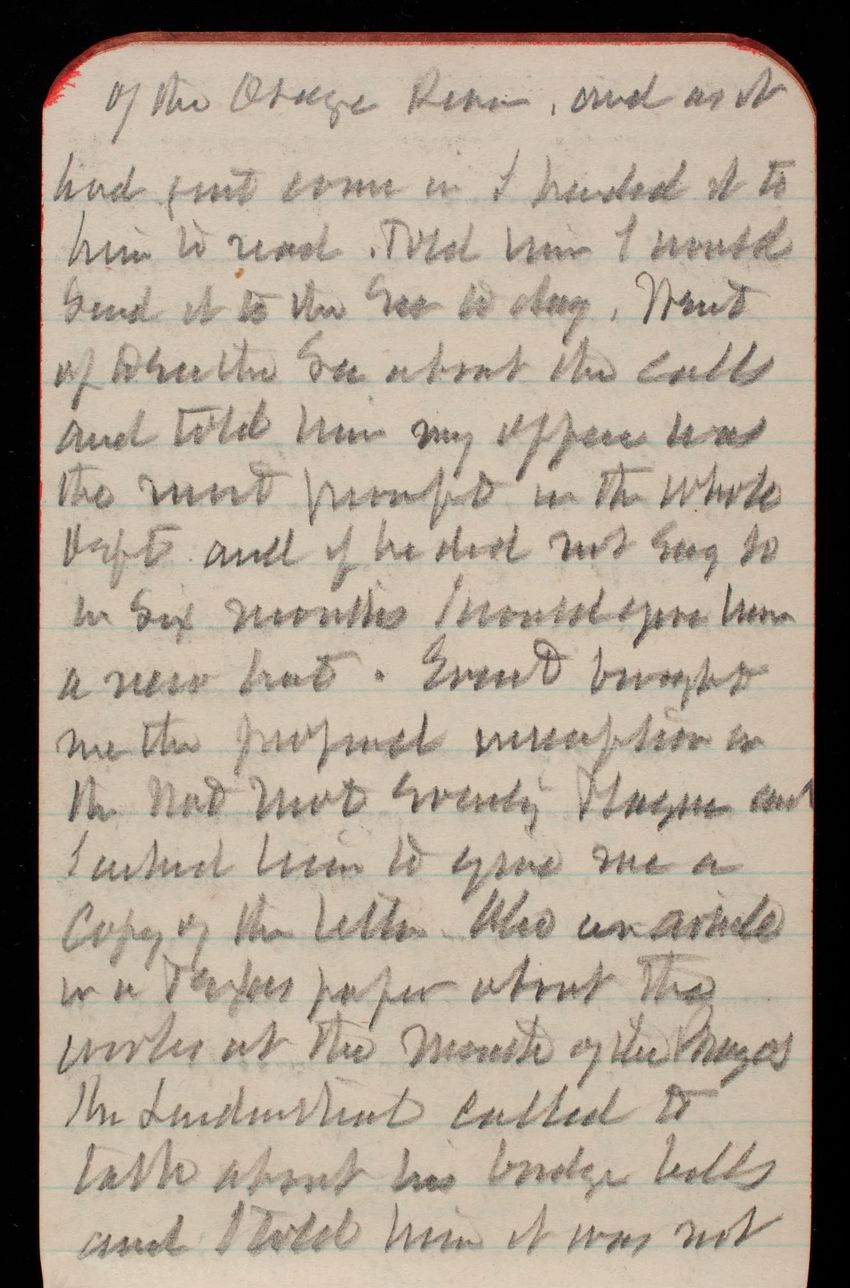 of the Osage River, and as it
had just come in I handed it to
him to read. Told him I would
Send it to the Sec to day. Went
to see the Sec about the calls
and told him my office was
the most prompt in the whole
Dept and if he did not say so
in Six months I would give him
a new hat. Evert brought
me the proposed inscription on
the Nat Mot Gverly Hague and
I asked him to give me a
Copy of the letter. Also an article
in a Texas paper about the
works at the Mouth of the Brazos
The called to
talk about his bridge bills
and I told him it was not